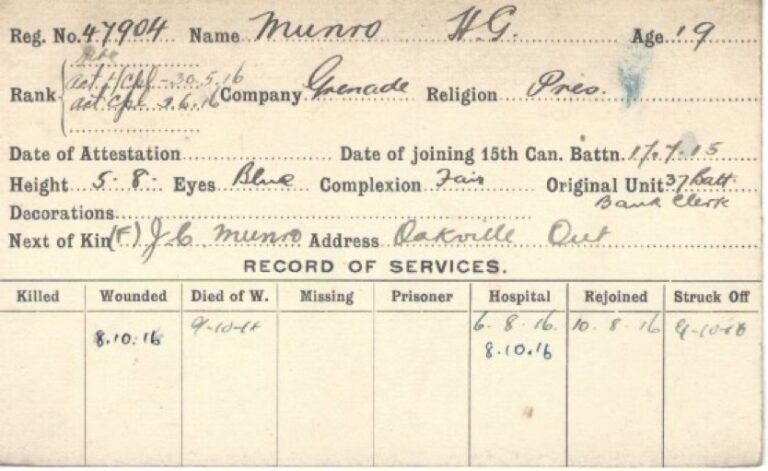 Reg. No. 47904 Name Munro H.G. Age 19
Pte
Rank act L/Cpl - 30.5.16 Company Grenade Religion Pres.
act Cpl 9.6.16
Date of Attestation Date of joining 15th Can. Battn. 17.7.15
Height 5-8- Eyes Blue Complexion Fair Original Unit 37 Batt.
Decorations Bank Clerk
Next of Kin (F) J.C Munro Address Oakville Ont
RECORD OF SERVICES.
Killed Wounded Died of W. Missing Prisoner Hospital Rejoined Struck Off
8.10.16 9-10-16 6.8.16. 10.8.16 9-10-16
8.10.16